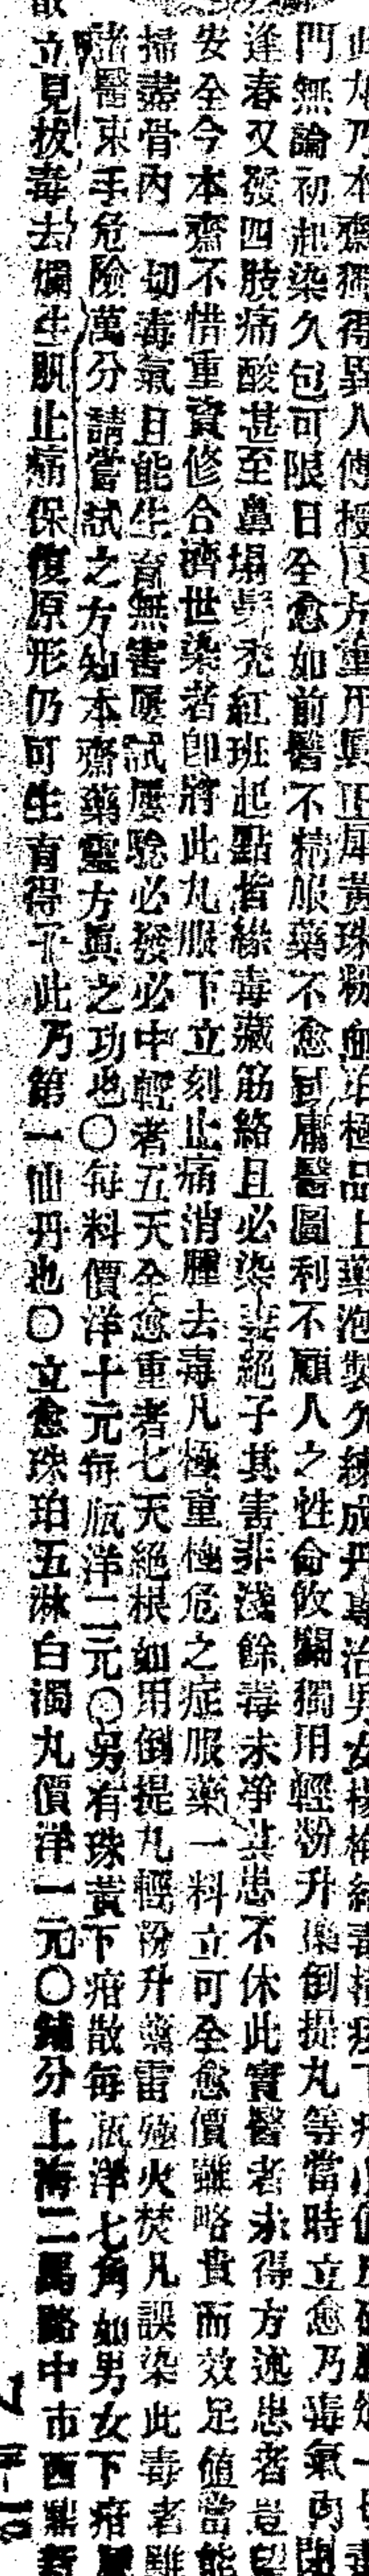 此丸乃本齋獨得異人傳授方重用眞正犀黃珠粉血珀極品上藥泡製久練成丹專治男女楊梅結毒橫痃下疳
門無論初起染久包可限日全愈如前醫不精服藥不愈或庸醫圖利不顧人之性命攸關獨用輕粉升藥倒提丸等當時立愈乃毒氣內閉
逢春又發四肢痛酸甚至鼻塌髮禿紅班起點皆緣毒藏筋絡且必染妻絕子其害非淺餘毒未淨其患不休此實醫者未得方述患者豈望
安全今本齋不惜重資修合濟世染者卽將此丸服下立刻止痛消腫去毒凡極重極危之症服藥一料立可全愈價雖略貴而效足值當能
掃盡骨內一切毒氣且能生育無害屢試屢驗必發必中輕者五天全愈重者七天絕根如用倒提丸輕粉升藥雷殛火焚凡誤染此毒者雖
諸醫束手危險萬分請嘗試之方知本齋藥靈方眞之功也〇每料價洋十元每瓶洋二元〇另有珠黃下疳散每瓶洋七角如男女下疳
立見拔毒去爛生肌止痛保復原形仍可生育得子此乃第一仙丹也〇立愈珠珀五淋白濁丸價洋一元〇鋪分上海二馬路中市西鼎新